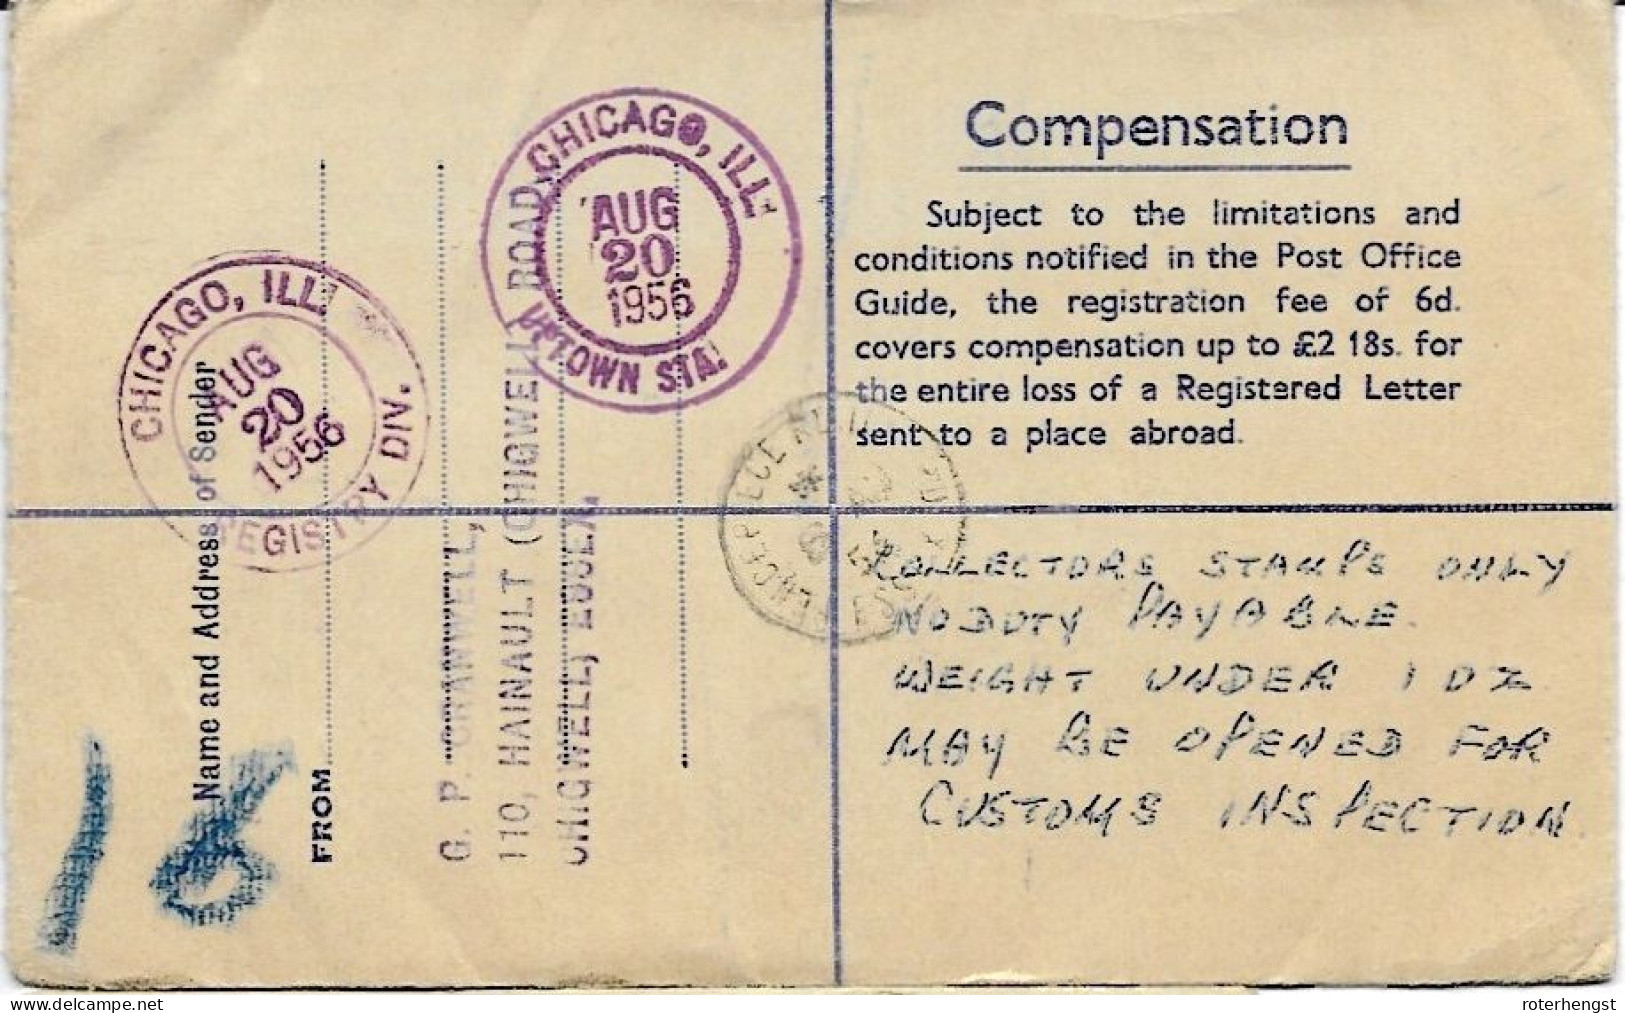 Compensation
Subject to the limitations and
conditions notified in the Post Office
Guide, the registration fee of 6d.
covers compensation up to £2 18s. for
the entire loss of a Registered Letter
sent to a place abroad.
COLLECTORS STAMPS ONLY
NO DUTY PAYABLE.
WEIGHT UNDER 1 OZ
MAY BE OPENED FOR
CUSTOMS INSPECTION.
CHICAGO, ILL.
AUG
20
1956
UPTOWN STA.
CHICAGO, ILL.
AUG
20
1956
REGISTRY DIV.
Name and Address of Sender
FROM
G. P. CRANWELL,
110, HAINAULT (CHIGWELL) ROAD,
CHIGWELL, ESSEX.
16
www.delcampe.net
roterhengst